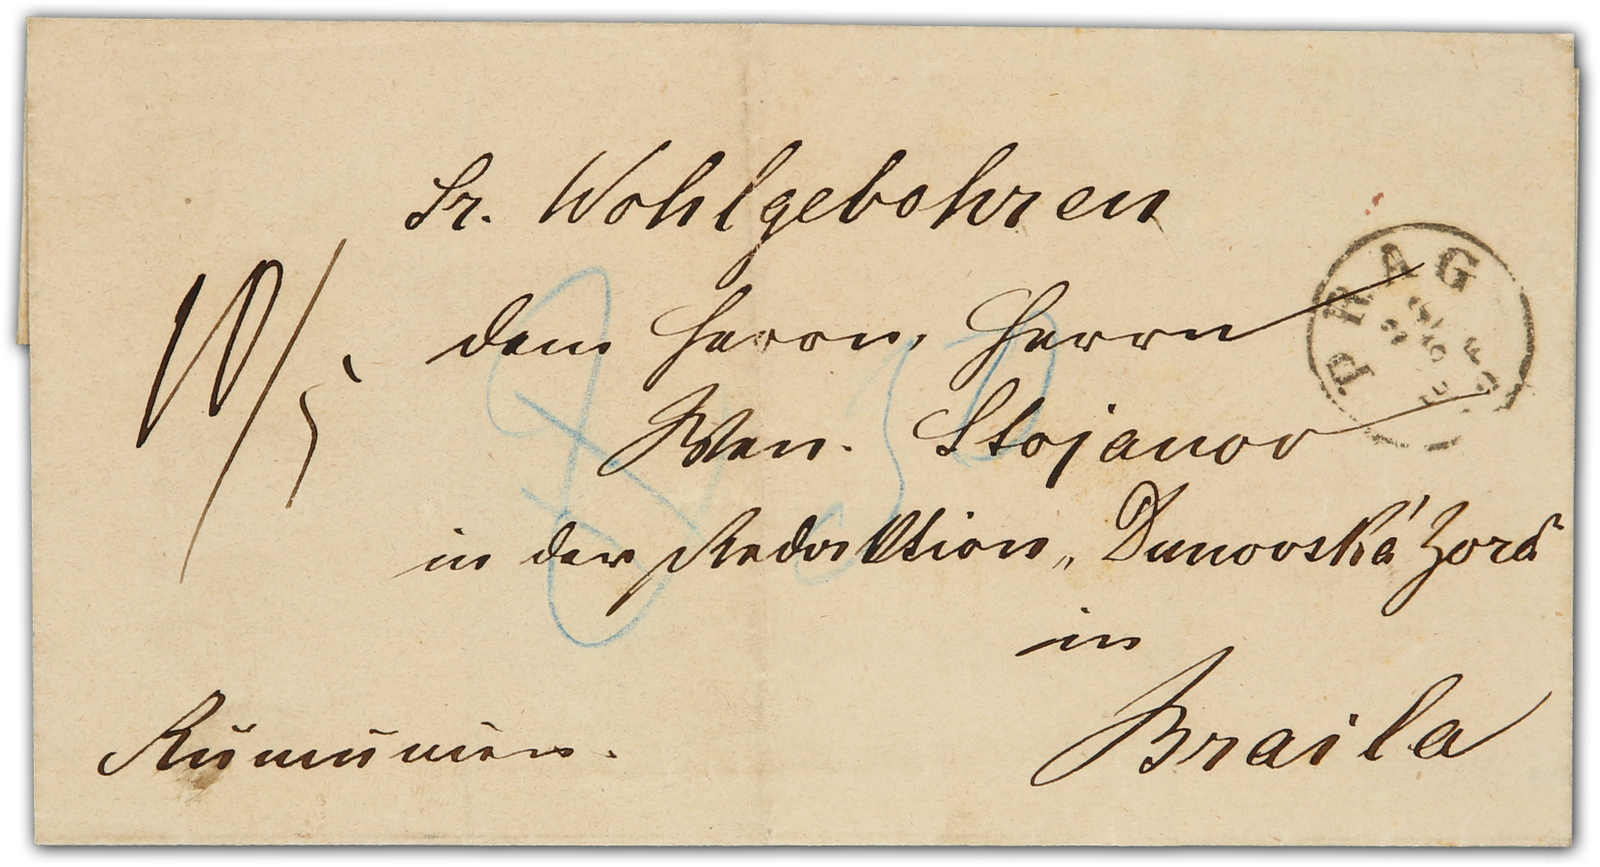 Sr. Wohlgebohren
dem Herrn, Herrn
Wen. Stojanov
in der Redaktion „Dunovská Zora“
in
Braila
Rumunien.
PRAG